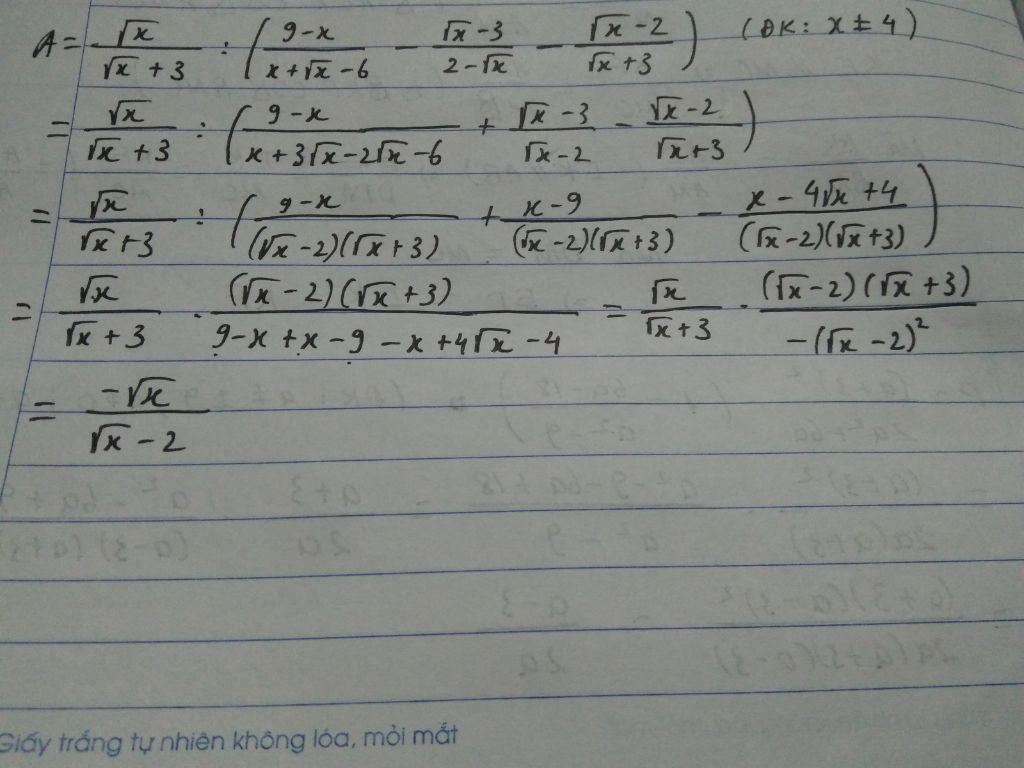 A = √x/(√x + 3) : ( (9 - x)/(x + √x - 6) - (√x - 3)/(2 - √x) - (√x - 2)/(√x + 3) ) (ĐK: x ≠ 4)
= √x/(√x + 3) : ( (9 - x)/(x + 3√x - 2√x - 6) + (√x - 3)/(√x - 2) - (√x - 2)/(√x + 3) )
= √x/(√x + 3) : ( (9 - x)/((√x - 2)(√x + 3)) + (x - 9)/((√x - 2)(√x + 3)) - (x - 4√x + 4)/((√x - 2)(√x + 3)) )
= √x/(√x + 3) · ((√x - 2)(√x + 3))/(9 - x + x - 9 - x + 4√x - 4) = √x/(√x + 3) · ((√x - 2)(√x + 3))/(-(√x - 2)²)
= -√x/(√x - 2)
Giấy trắng tự nhiên không lóa, mỏi mắt